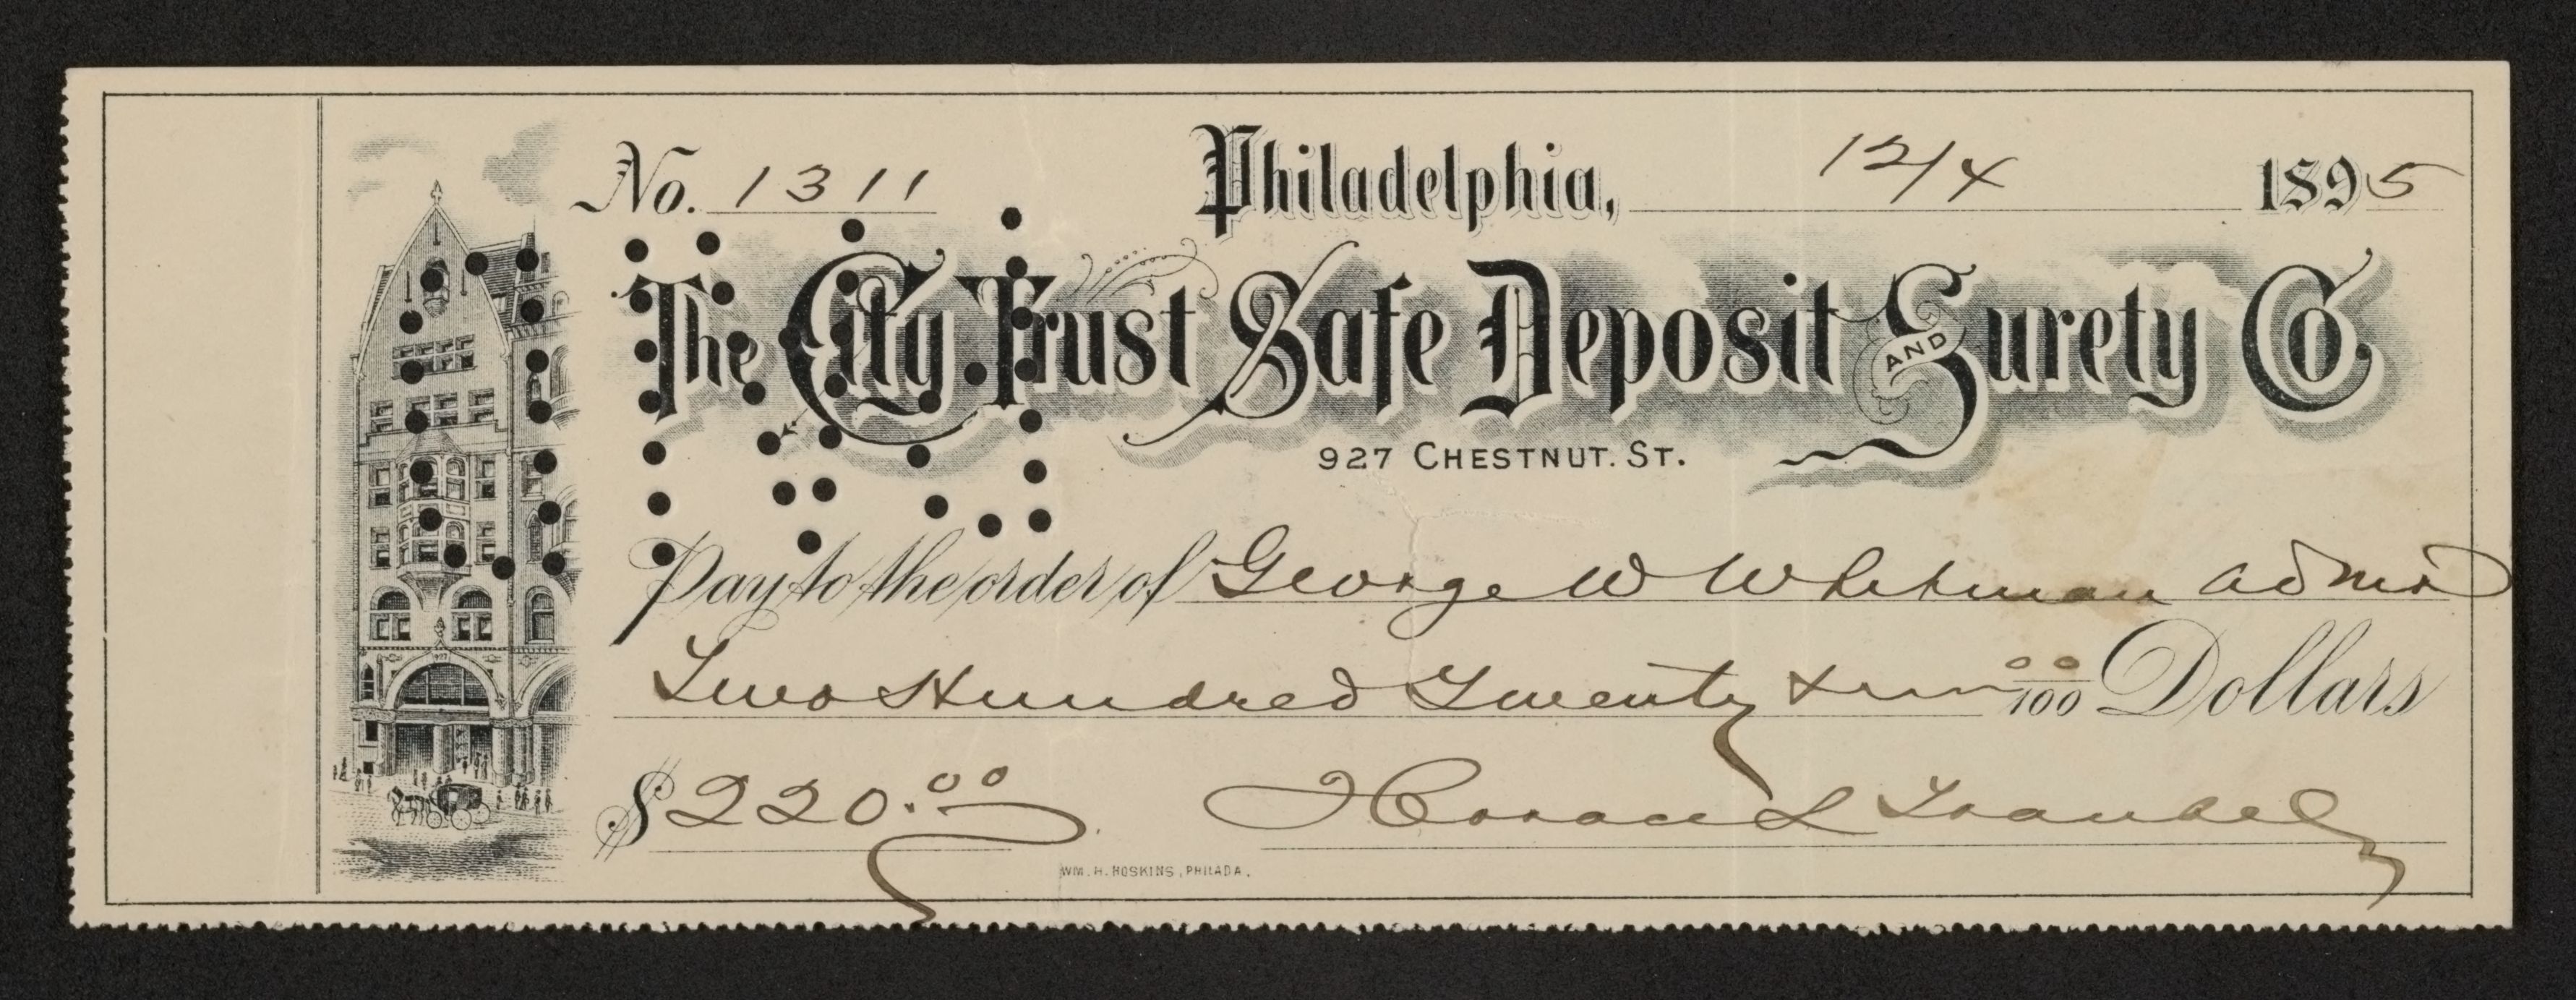 No. 1311 Philadelphia, 12/4 1895
The City Trust Safe Deposit AND Surety Co.
927 CHESTNUT. ST.
Pay to the order of George W Whitman admr
Two Hundred Twenty 00/100 Dollars
$220.00 Horace L Traubel
WM. H. HOSKINS, PHILADA.